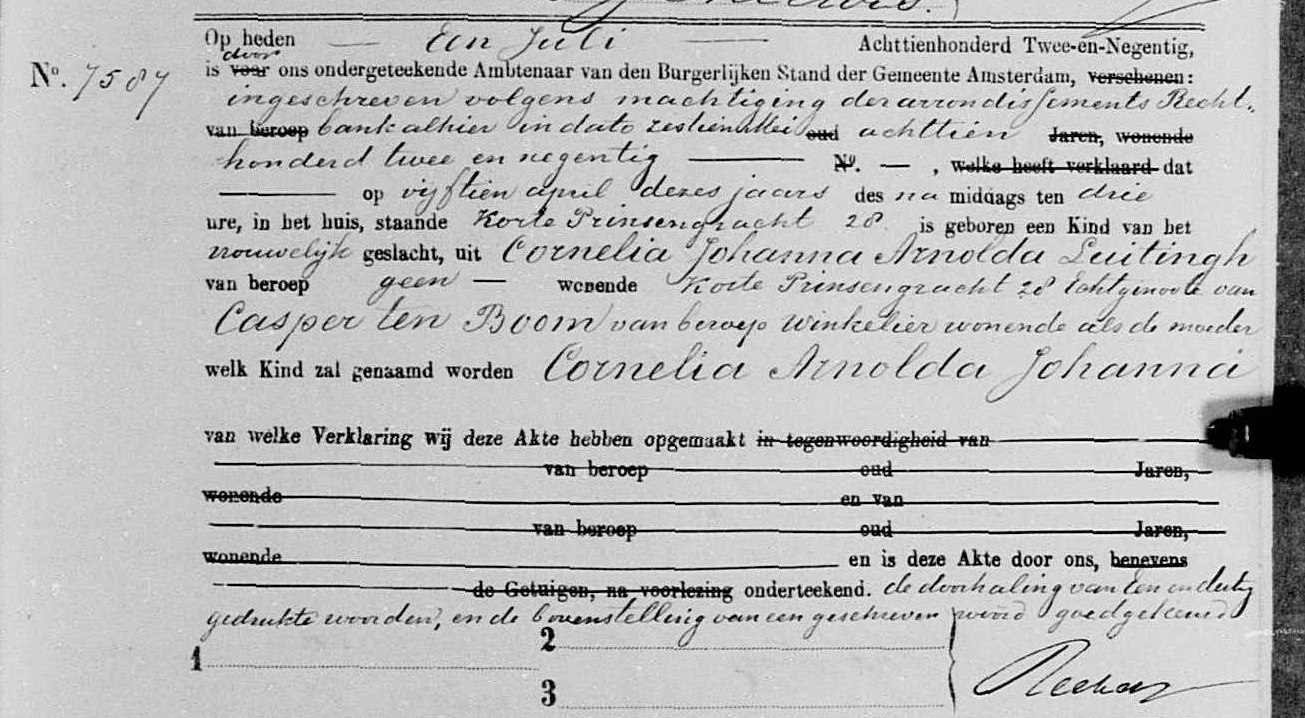 Op heden Een Juli Achttienhonderd Twee-en-Negentig,
door
No. 7587 is voor ons ondergeteekende Ambtenaar van den Burgerlijken Stand der Gemeente Amsterdam, verschenen:
ingeschreven volgens machtiging der arrondissements Recht-
van beroep bank alhier in dato zestien Mei oud achttien Jaren, wonende
honderd twee en negentig No. — , welke heeft verklaard dat
op vijftien april dezes jaars des na middags ten drie
ure, in het huis, staande Korte Prinsengracht 28 is geboren een Kind van het
vrouwelijk geslacht, uit Cornelia Johanna Arnolda Luitingh
van beroep geen — wonende Korte Prinsengracht 28 Echtgenoote van
Casper ten Boom van beroep Winkelier wonende als de moeder
welk Kind zal genaamd worden Cornelia Arnolda Johanna
van welke Verklaring wij deze Akte hebben opgemaakt in tegenwoordigheid van
van beroep oud Jaren,
wonende en van
van beroep oud Jaren,
wonende en is deze Akte door ons, benevens
de Getuigen, na voorlezing onderteekend. de doorhaling van een en dertig
gedrukte woorden, en de bovenstelling van een geschreven woord goedgekeurd
1 2
3